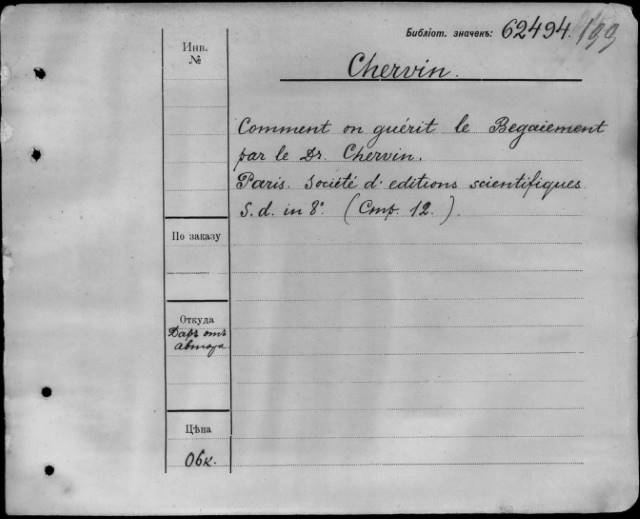 Библіот. значекъ: 62494. 199
Инв.
№
Chervin.
Comment on guérit le Begaiement
par le Dr. Chervin.
Paris. Société d'editions scientifiques
S. d. in 8°. (Стр. 12.).
По заказу
Откуда
Даръ отъ
автора
Цѣна
Об к.